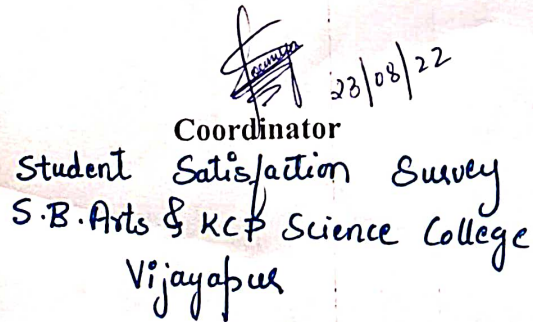 23/08/22
Coordinator
Student Satisfaction Survey
S.B.Arts & KCP Science College
Vijayapur